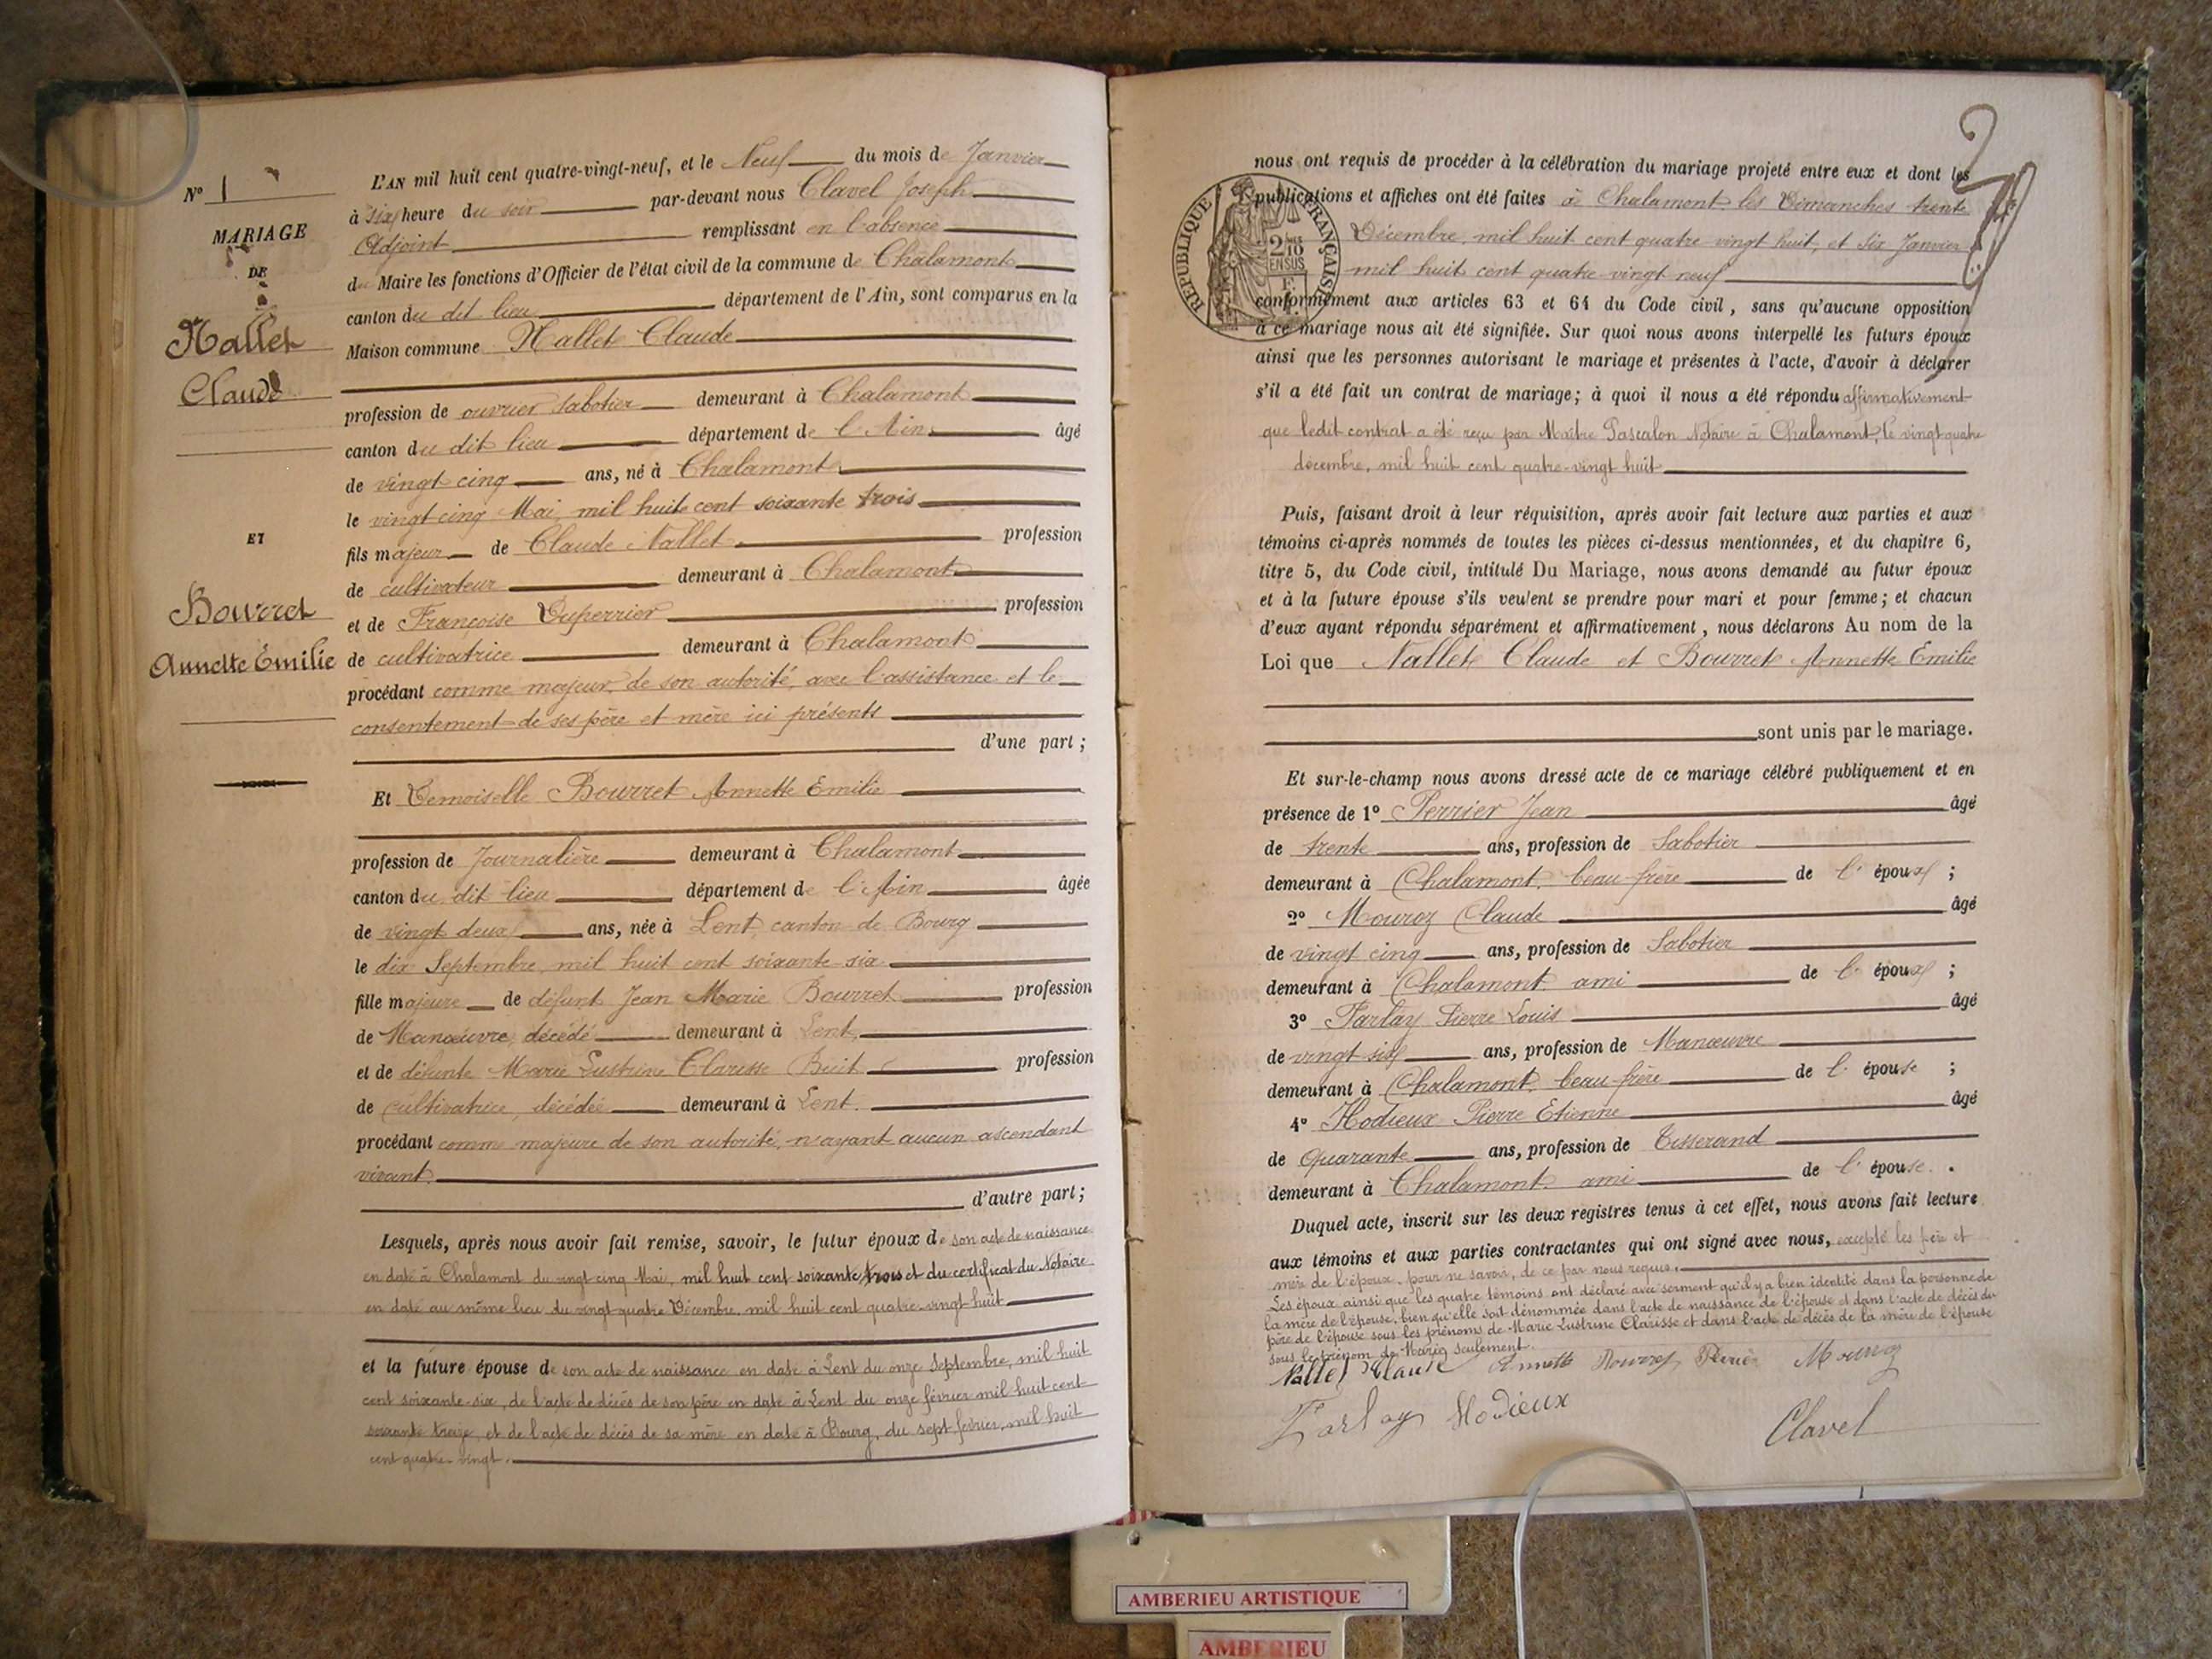 N° 1
MARIAGE
DE
Nallet
Claude
ET
Bourret
Annette Emilie
L'AN mil huit cent quatre-vingt-neuf, et le Neuf du mois de Janvier
à six heure du soir par-devant nous Clavel Joseph
Adjoint remplissant en l'absence
du Maire les fonctions d'Officier de l'état civil de la commune de Chalamont
canton du dit lieu département de l'Ain, sont comparus en la
Maison commune Nallet Claude
profession de ouvrier sabotier demeurant à Chalamont
canton du dit lieu département de l'Ain âgé
de vingt cinq ans, né à Chalamont
le vingt-cinq Mai mil huit cent soixante trois
fils majeur de Claude Nallet profession
de cultivateur demeurant à Chalamont
et de Françoise Duperrier profession
de cultivatrice demeurant à Chalamont
procédant comme majeur, de son autorité, avec l'assistance et le
consentement de ses père et mère ici présents
d'une part ;
Et Demoiselle Bourret Annette Emilie
profession de Journalière demeurant à Chalamont
canton du dit lieu département de l'Ain âgée
de vingt deux ans, née à Lent canton de Bourg
le dix Septembre mil huit cent soixante-six
fille majeure de défunt Jean Marie Bourret profession
de Manœuvre, décédé demeurant à Lent
et de défunte Marie Lustrine Clarisse profession
de cultivatrice, décédée demeurant à Lent.
procédant comme majeure de son autorité, n'ayant aucun ascendant
vivant.
d'autre part ;
Lesquels, après nous avoir fait remise, savoir, le futur époux de son acte de naissance
en date à Chalamont du vingt cinq Mai, mil huit cent soixante trois et du certificat du Notaire
en date au même lieu du vingt-quatre Décembre, mil huit cent quatre-vingt-huit
et la future épouse de son acte de naissance en date à Lent du onze Septembre, mil huit
cent soixante-six, de l'acte de décès de son père en date à Lent du onze février mil huit cent
soixante treize, et de l'acte de décès de sa mère en date à Bourg, du sept février, mil huit
cent quatre-vingt.
nous ont requis de procéder à la célébration du mariage projeté entre eux et dont les
publications et affiches ont été faites à Chalamont, les Dimanches trente
Décembre, mil huit cent quatre-vingt huit, et six Janvier
mil huit cent quatre-vingt neuf
REPUBLIQUE FRANÇAISE
2/10 EN SUS
conformément aux articles 63 et 64 du Code civil, sans qu'aucune opposition
à ce mariage nous ait été signifiée. Sur quoi nous avons interpellé les futurs époux
ainsi que les personnes autorisant le mariage et présentes à l'acte, d'avoir à déclarer
s'il a été fait un contrat de mariage; à quoi il nous a été répondu affirmativement
que ledit contrat a été reçu par Maître Pascalon Notaire à Chalamont, le vingt quatre
décembre, mil huit cent quatre-vingt huit
Puis, faisant droit à leur réquisition, après avoir fait lecture aux parties et aux
témoins ci-après nommés de toutes les pièces ci-dessus mentionnées, et du chapitre 6,
titre 5, du Code civil, intitulé Du Mariage, nous avons demandé au futur époux
et à la future épouse s'ils veulent se prendre pour mari et pour femme; et chacun
d'eux ayant répondu séparément et affirmativement, nous déclarons Au nom de la
Loi que Nallet Claude et Bourret Annette Emilie
sont unis par le mariage.
Et sur-le-champ nous avons dressé acte de ce mariage célébré publiquement et en
présence de 1° Perrier Jean âgé
de trente ans, profession de Sabotier
demeurant à Chalamont, beau-frère de l'époux ;
2° Mouroz Claude âgé
de vingt cinq ans, profession de Sabotier
demeurant à Chalamont ami de l'époux ;
3° Farlay Pierre Louis âgé
de vingt six ans, profession de Manœuvre
demeurant à Chalamont, beau-frère de l'épouse ;
4° Hodieux Pierre Etienne âgé
de Quarante ans, profession de Tisserand
demeurant à Chalamont ami de l'épouse.
Duquel acte, inscrit sur les deux registres tenus à cet effet, nous avons fait lecture
aux témoins et aux parties contractantes qui ont signé avec nous, excepté les père et
mère de l'époux, pour ne savoir, de ce par nous requis.
Les époux ainsi que les quatre témoins ont déclaré avec serment qu'il y a bien identité dans la personne de
la mère de l'épouse, bien qu'elle soit dénommée dans l'acte de naissance de l'épouse et dans l'acte de décès du
père de l'épouse sous les prénoms de Marie Lustrine Clarisse et dans l'acte de décès de la mère de l'épouse
sous le prénom de Marie seulement.
Nallet Claude Annette Bourret Perrier Mouroz
Farlay Hodieux
Clavel
AMBERIEU ARTISTIQUE
AMBERIEU